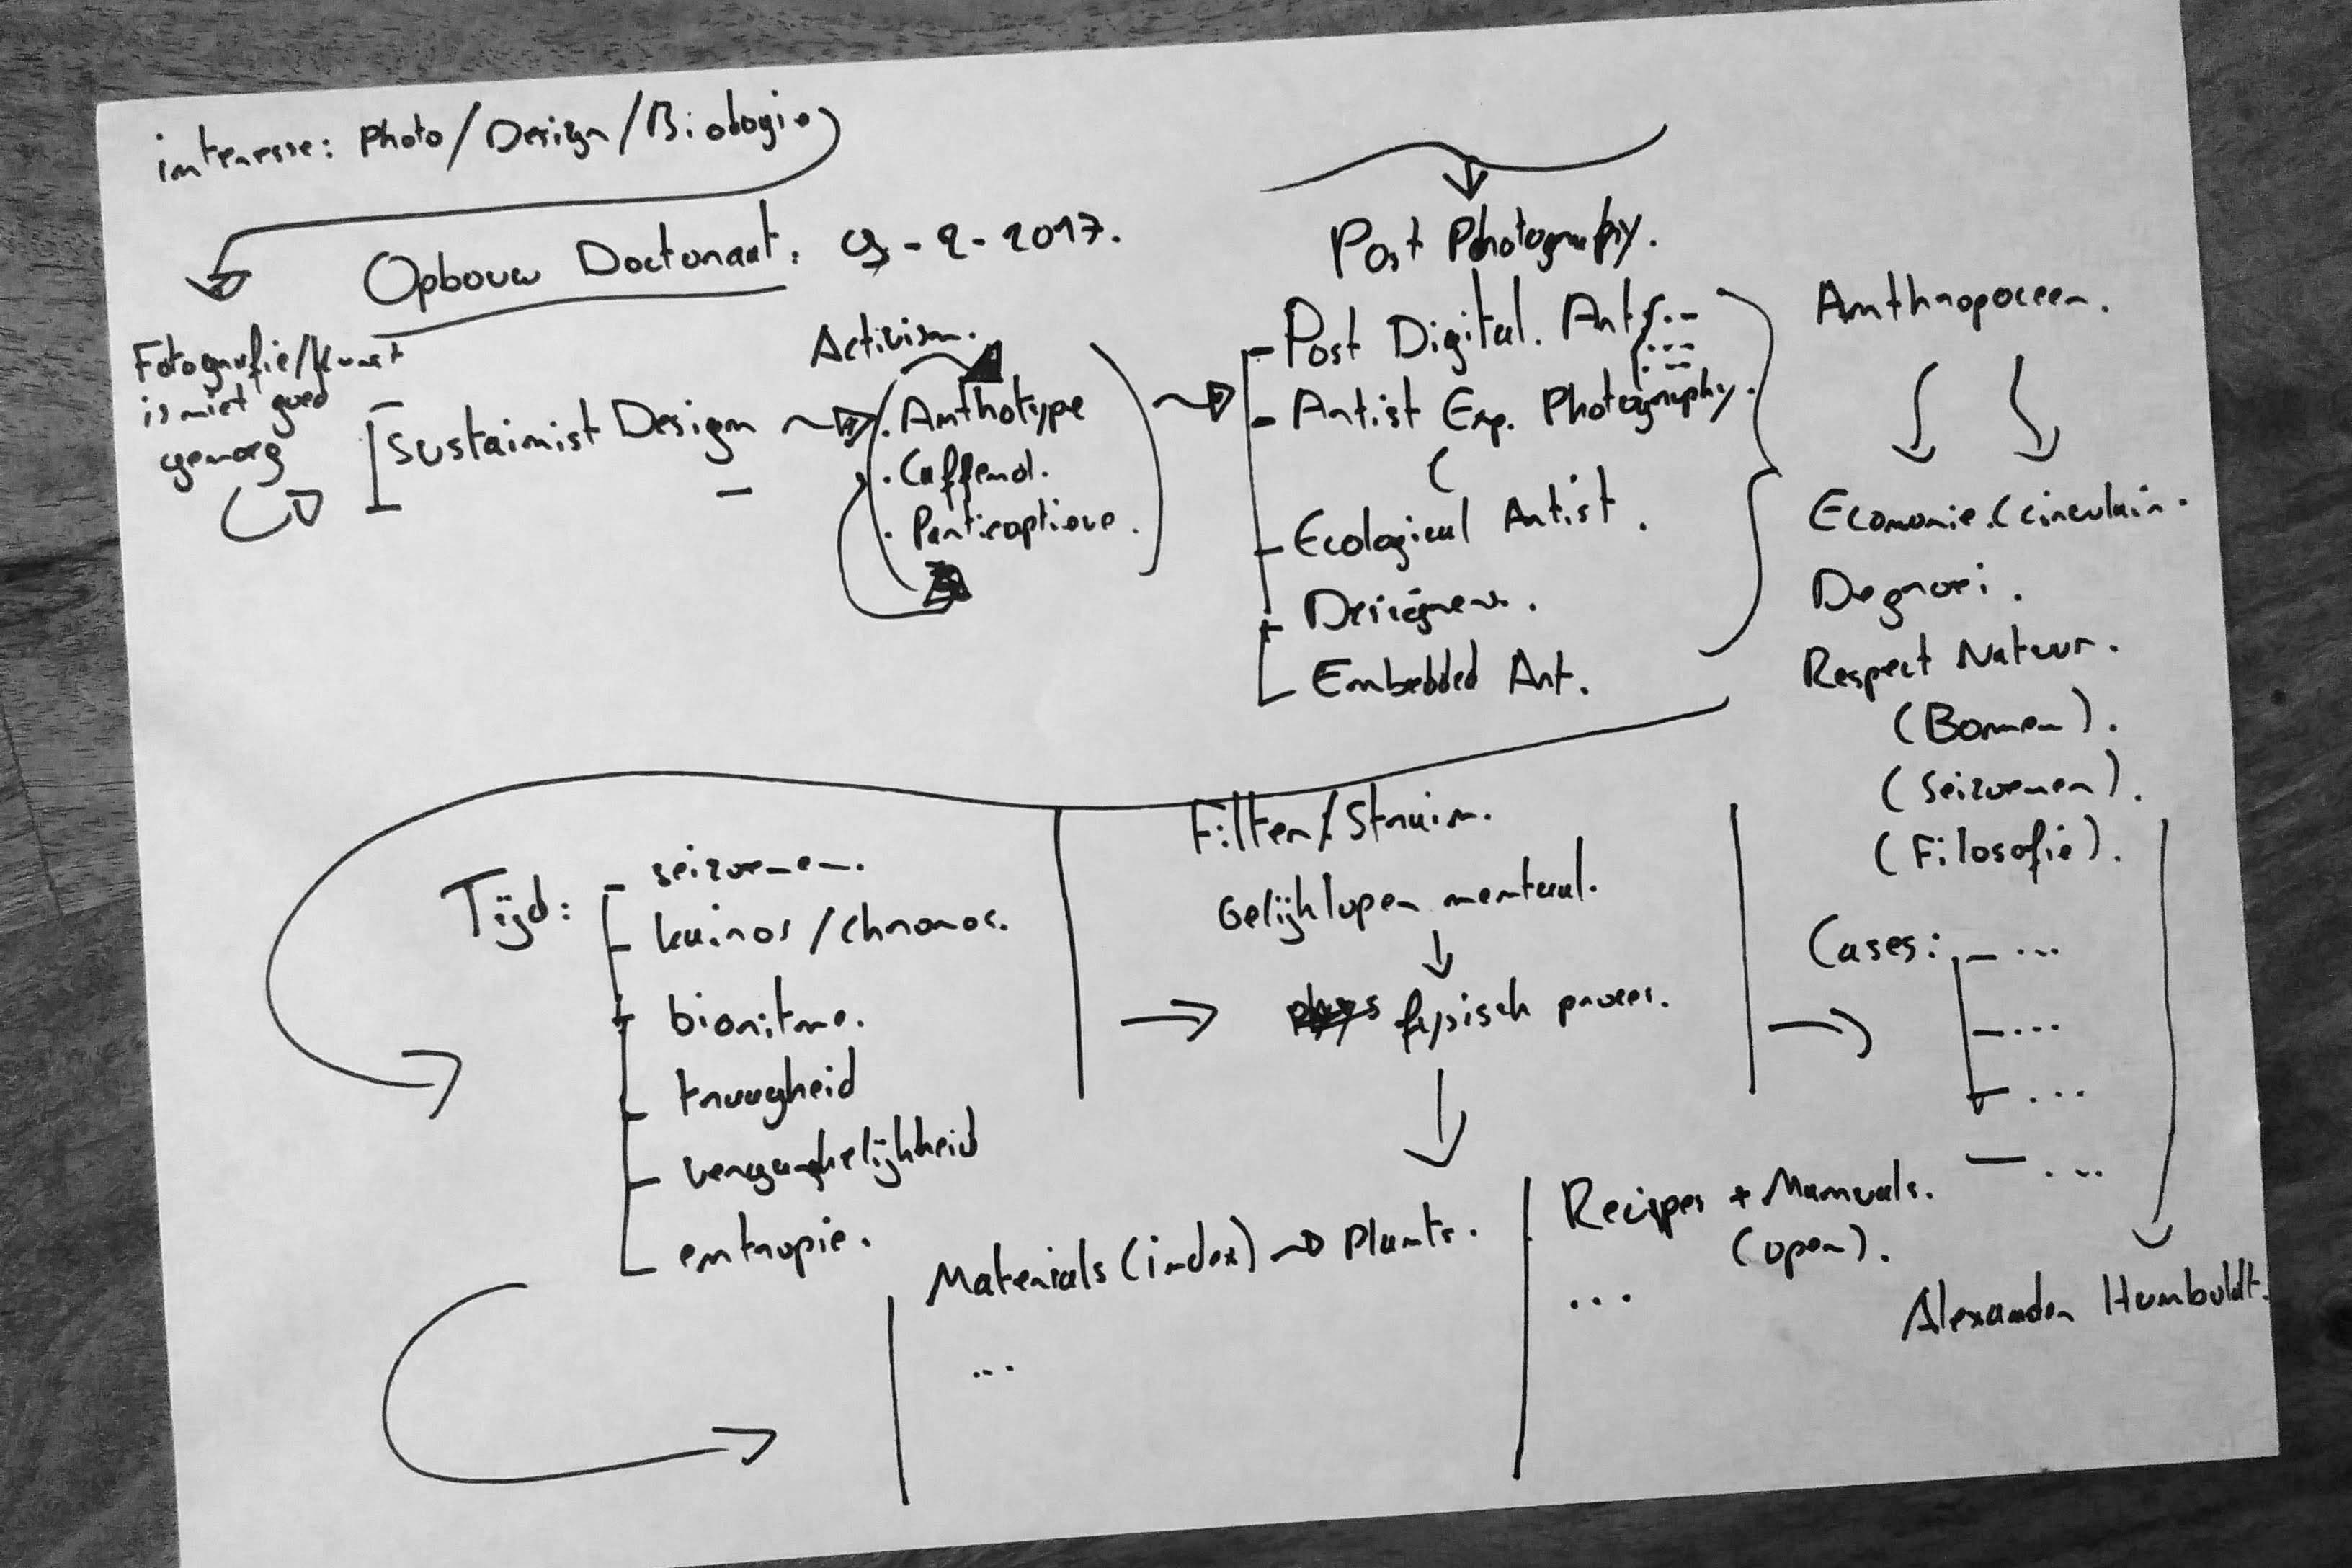 interesse: Photo/Design/Biologie
Opbouw Doctoraat. 9-2-2017.
Fotografie/kunst
is niet goed
genoeg
Sustainist Design
Activism.
. Anthotype
. Caffenol.
. Participatieve.
Post Photography.
- Post Digital. Art ...
- Artist Exp. Photography.
- Ecological Artist.
- Designers.
- Embedded Art.
Anthropoceen.
Economie. (circulair.
Degroei.
Respect Natuur.
(Bomen).
(Seizoenen).
(Filosofie).
Tijd:
- seizoenen.
- kairos / chronos.
- bioritme.
- traagheid
- vergankelijkheid
- entropie.
Filter/Struin.
Gelijklopen mentaal.
fysisch proces.
Cases: - ...
- ...
- ...
- ...
Alexander Humboldt.
Materials (index) → Plants.
...
Recipes + Manuals.
(open).
...